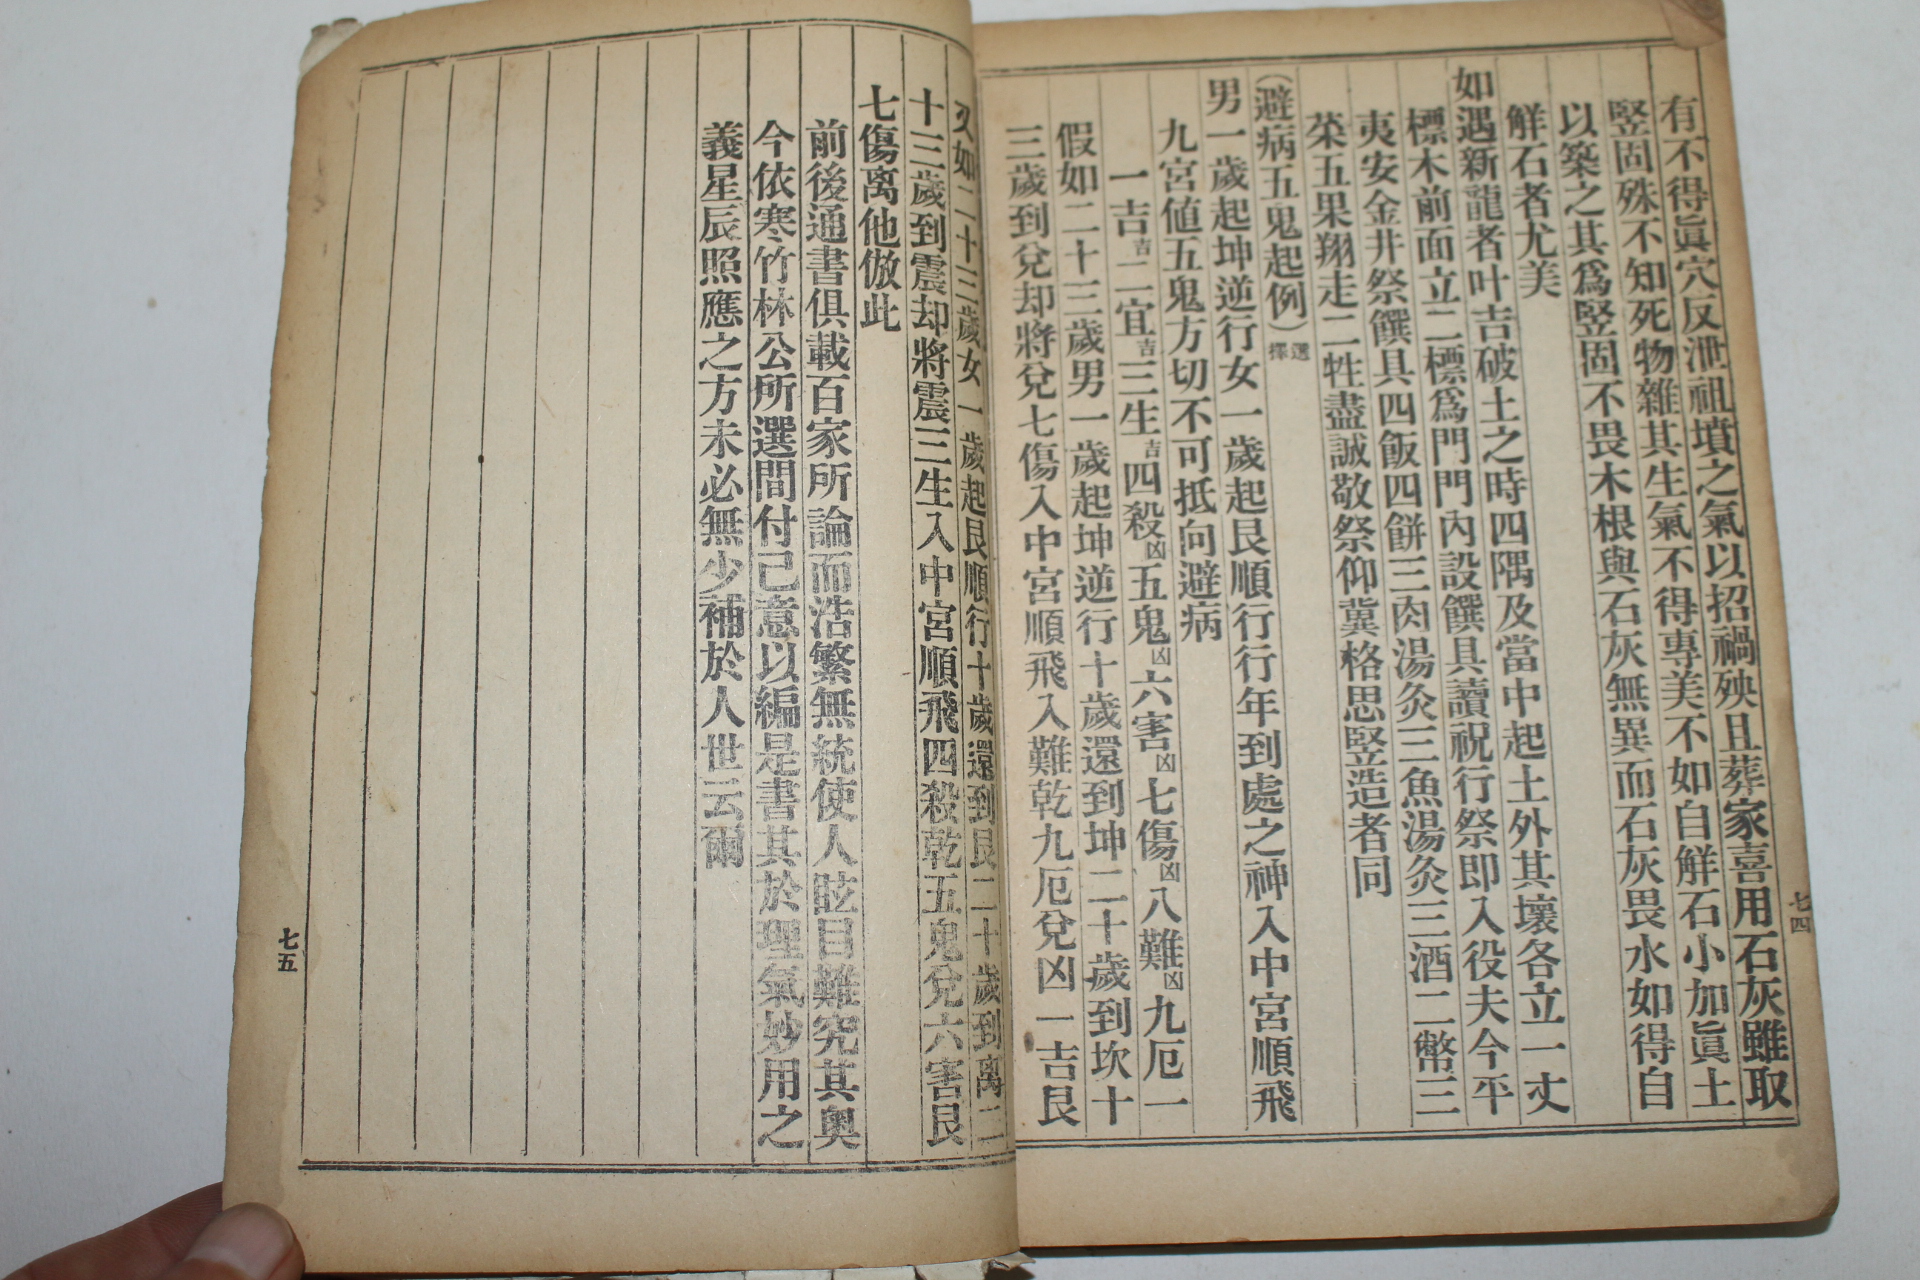 有不得眞穴反泄祖墳之氣以招禍殃且葬家喜用石灰雖取
竪固殊不知死物雜其生氣不得專美不如自解石小加眞土
以築之其爲竪固不畏木根與石灰無異而石灰畏水如得自
解石者尤美
如遇新龍者叶吉破土之時四隅及當中起土外其壞各立一丈
標木前面立二標爲門門內設饌具讀祝行祭即入役夫今平
夷安金井祭饌具四飯四餅三肉湯灸三魚湯灸三酒二幣三
菜五果翔走二牲盡誠敬祭仰冀格思竪造者同
(避病五鬼起例)選擇
男一歲起坤逆行女一歲起艮順行行年到處之神入中宮順飛
九宮値五鬼方切不可抵向避病
一吉吉二宜吉三生吉四殺凶五鬼凶六害凶七傷凶八難凶九厄一
假如二十三歲男一歲起坤逆行十歲還到坤二十歲到坎十
三歲到兌却將兌七傷入中宮順飛入難乾九厄兌凶一吉艮
七四
又如二十三歲女一歲起艮順行十歲還到艮二十歲到离二
十三歲到震却將震三生入中宮順飛四殺乾五鬼兌六害艮
七傷离他倣此
前後通書俱載百家所論而浩繁無統使人眩目難究其奧
今依寒竹林公所選間付己意以編是書其於理氣妙用之
義星辰照應之方未必無少補於人世云爾
七五